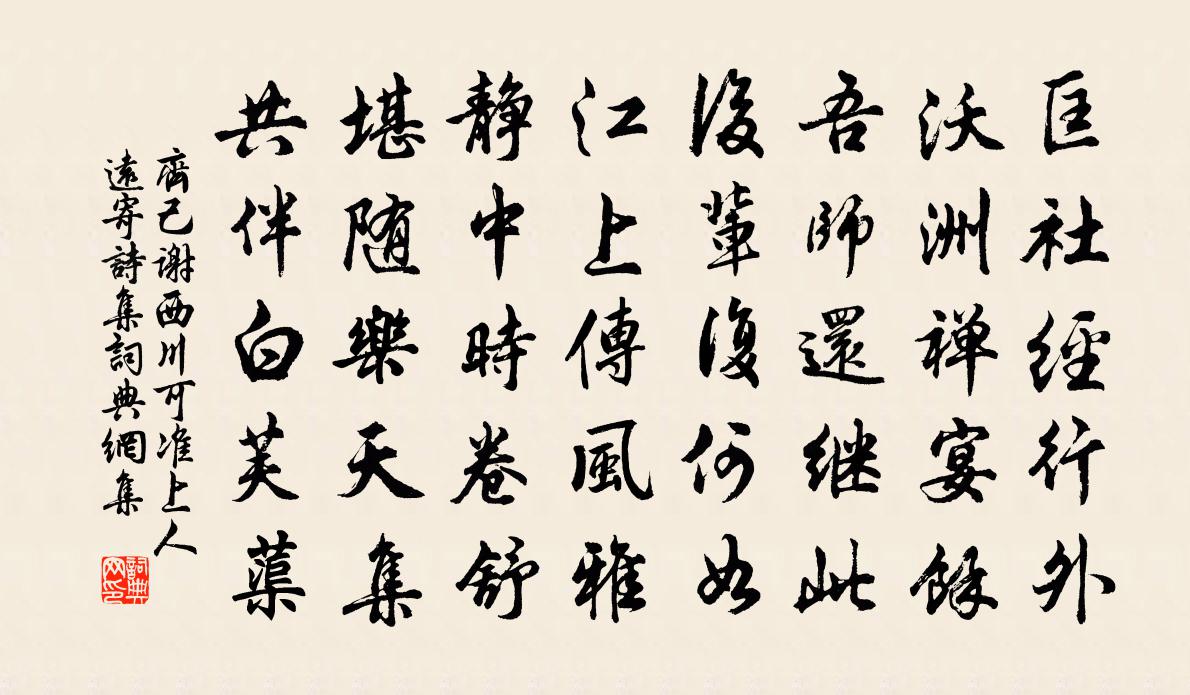 匡社經行外
沃洲禅宴餘
吾師還继此
後輩復何如
江上傳風雅
静中時卷舒
堪随樂天集
共伴白芙蕖
齊己谢西川可准上人
遠寄詩集詞典網集
詞典网印